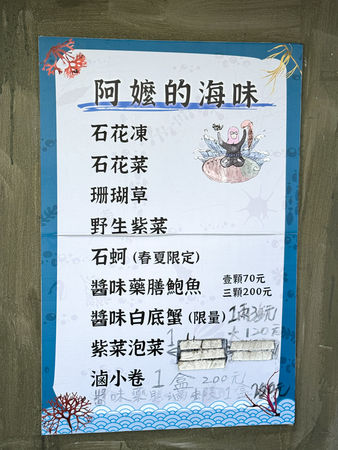 阿嬤的海味
石花凍
石花菜
珊瑚草
野生紫菜
石蚵(春夏限定)
醬味藥膳鮑魚 壹顆70元
三顆200元
醬味白底蟹(限量)
紫菜泡菜
滷小卷 1盒 200元
醬味藥膳